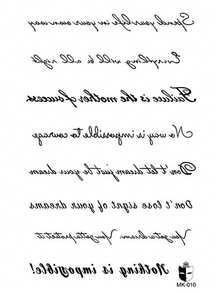 Spend your life in your own way
Everything will be all right
Failure is the mother of success
No way is impossible to courage
Don't let dream just be your dream
Don't lose sight of your dreams
You got a dream. You gotta protect it
Nothing is impossible!
MK-010